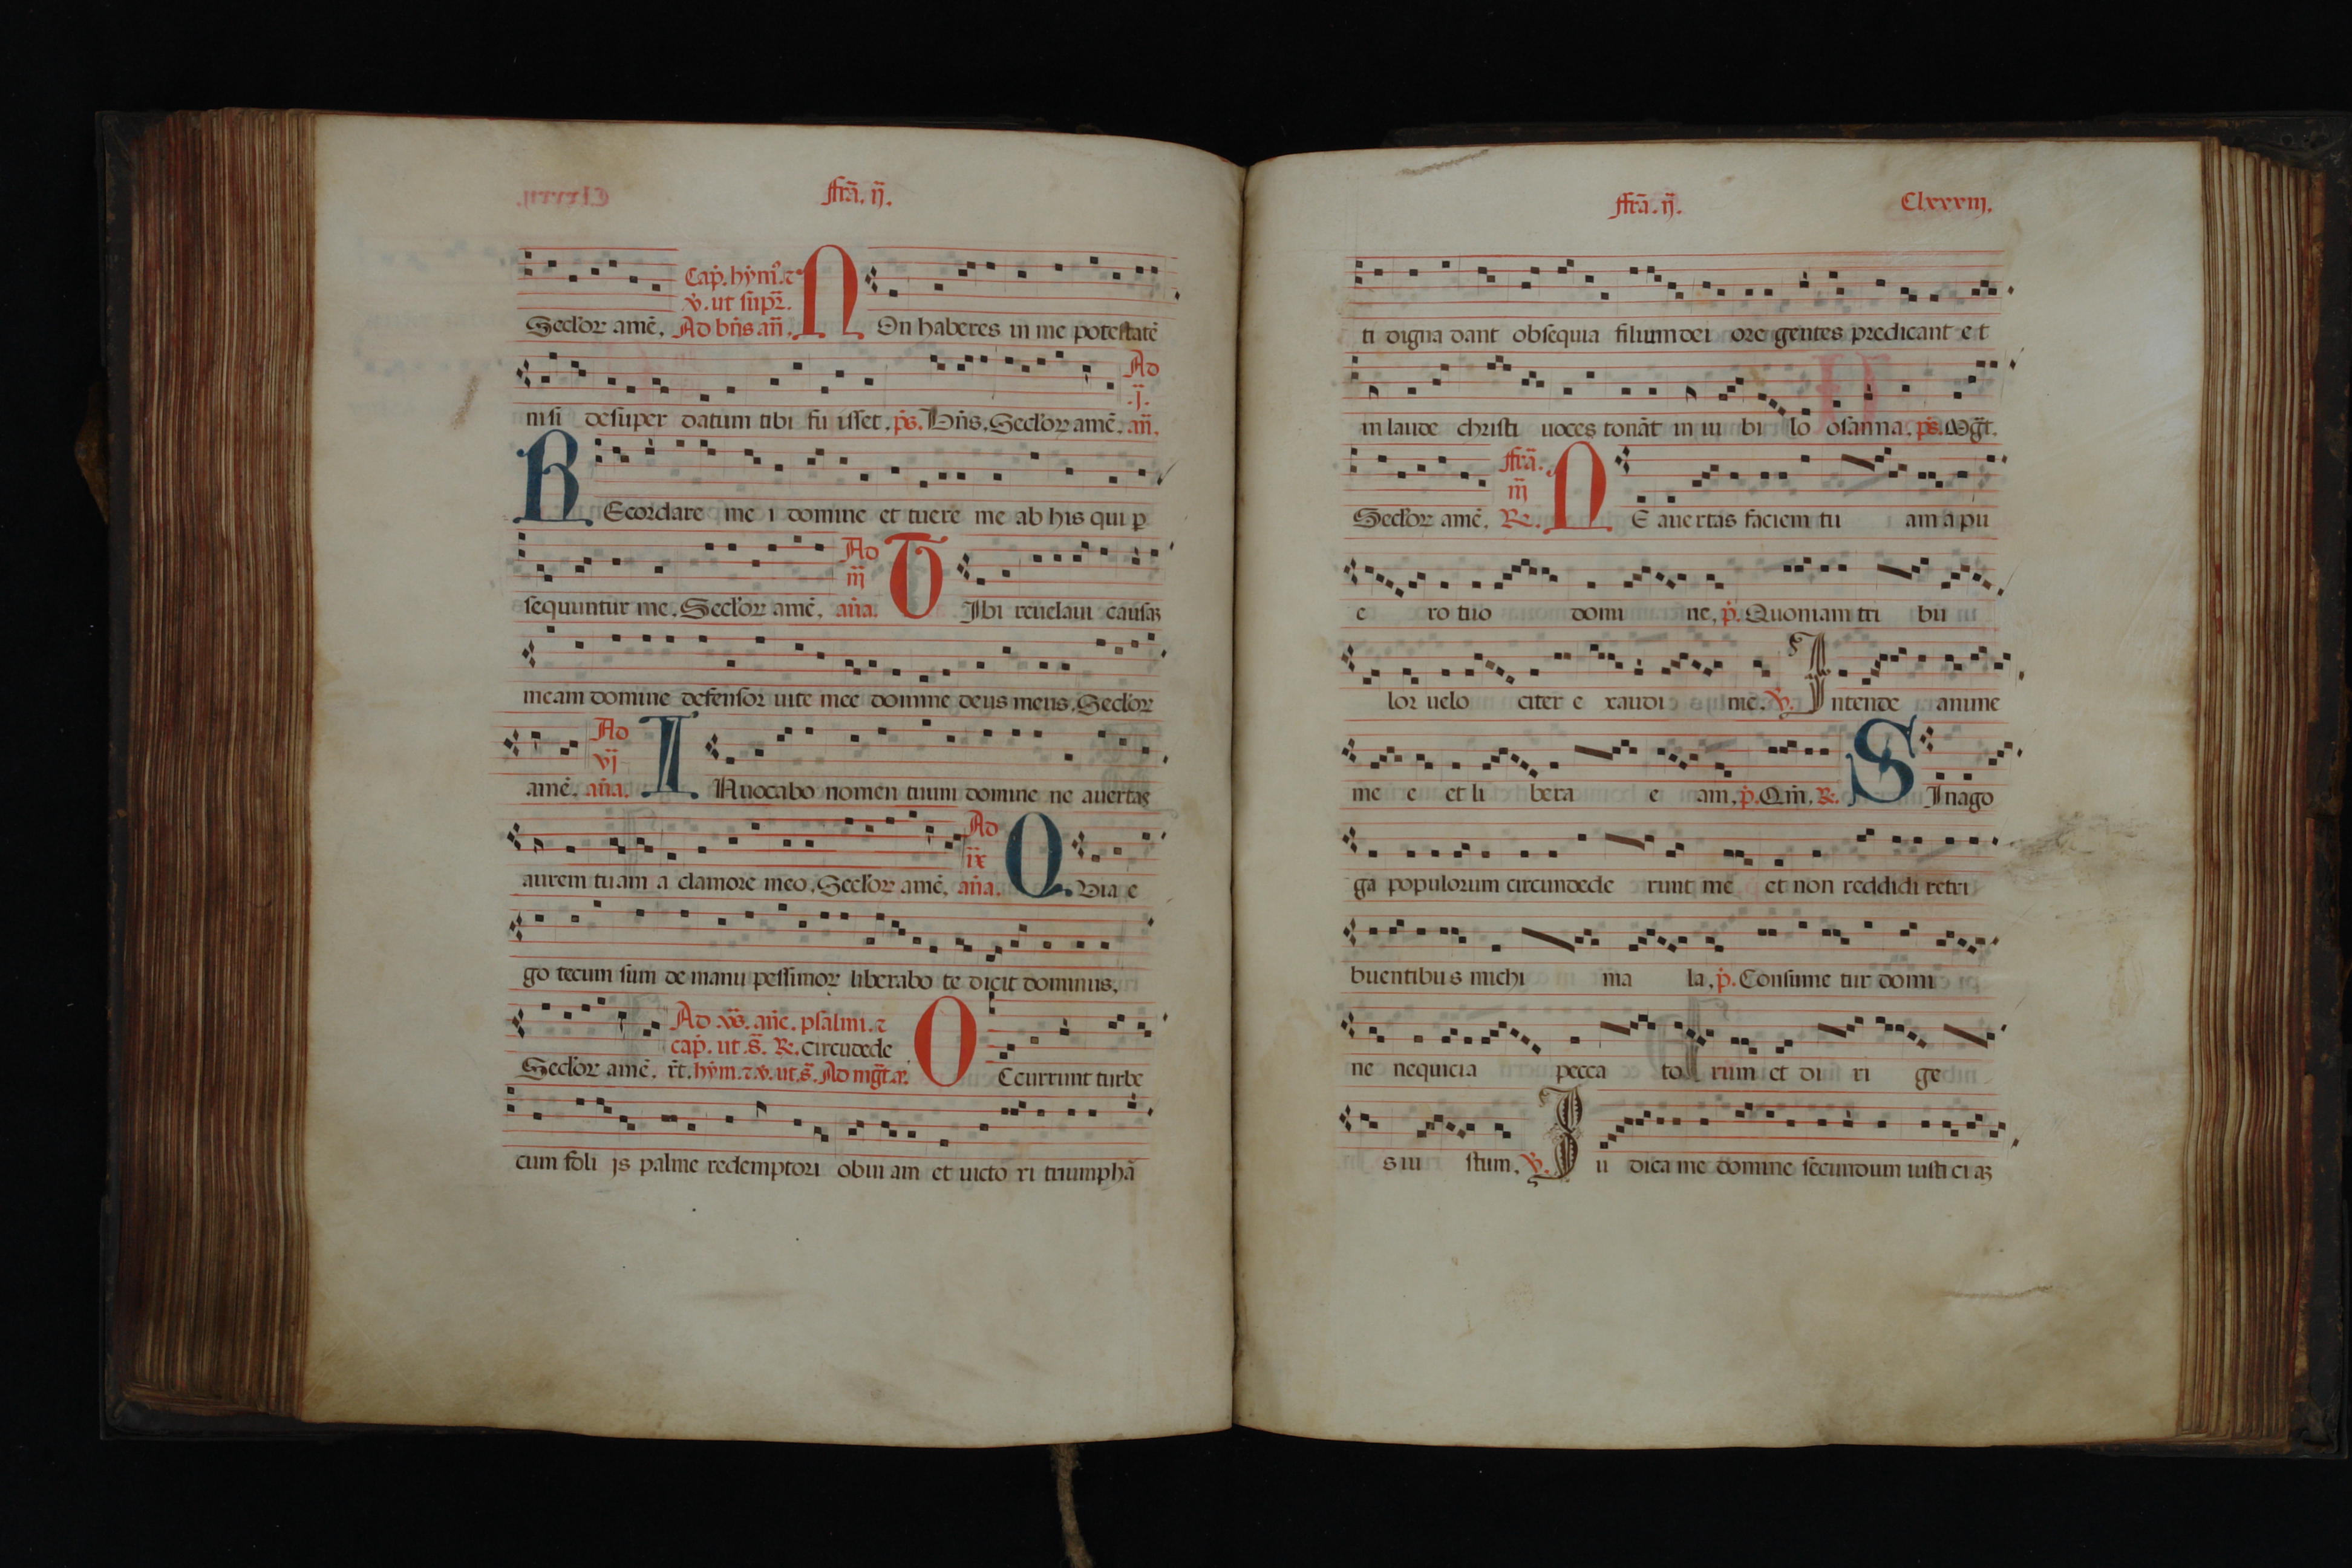 ffrā. ij̄.
Cap̄. hym̄. ⁊
v̇. ut supr̄.
Secl'or amē. Ad bn̄s an̄. NOn haberes in me potestatē
nisi desuper datum tibi fu isset. ps̄. Bn̄s. Secl'or amē. an̄.
Ad
.j̄.
REcordare me i domine et tuere me ab his qui p
Ad
iij̄
sequuntur me. Secl'or amē. an̄a. TIbi reuelaui causaȝ
meam domine defensor uite mee domine deus meus. Secl'or
Ad
vj̄
amē. an̄a. INuocabo nomen tuum domine ne auertas
Ad
ix̄
aurem tuam a clamore meo. Secl'or amē. an̄a. QVia e
go tecum sum de manu pessimor liberabo te dicit dominus.
Ad vs̄. an̄e. psalmi. ⁊
cap̄. ut .s̄. R̄. circūdede
Secl'or amē. r̄t. hym̄. ⁊ v̇. ut .s̄. Ad mḡt. a. OCcurrunt turbe
cum foli js palme redemptori obui am et uicto ri triumphā
ffrā. ij̄. Clxxxiij.
ti digna dant obsequia filium dei ore gentes predicant et
in laude christi uoces tonāt in iu bi lo osanna. ps̄. Mḡt.
ffrā.
iij̄
Secl'or amē. R̄. NE auertas faciem tu am a pu
e ro tuo domi ne. p̄. Quoniam tri bu
lor uelo citer e xaudi me. v̇. Intende anime
me e et li bera e am. p̄. Qm̄. R̄. SIn ago
ga populorum circundede runt me et non reddidi retri
buentibus michi ma la. p̄. Consume tur domi
ne nequicia pecca to rum et di ri ge
s iu stum. v̇. Iu dica me domine secundum iusti ci aȝ